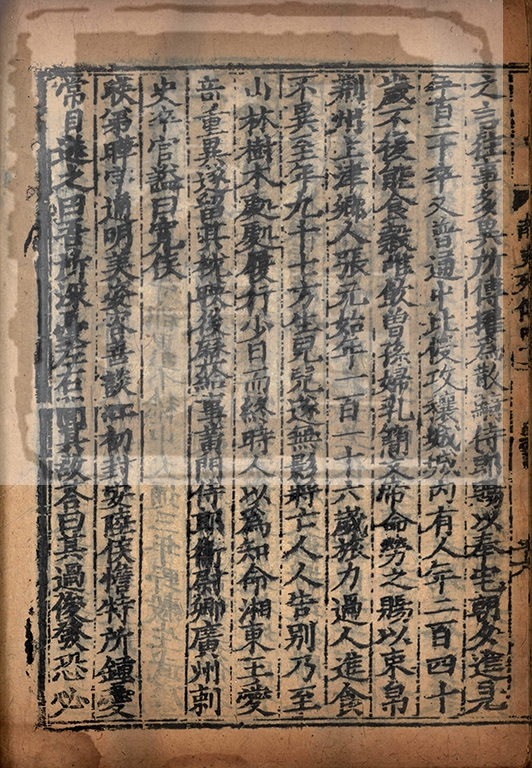 之言往事多異所傳擢為散騎侍郎賜以奉宅朝夕進見
年百二十卒又普通中北侵攻穰城城內有人年二百四十
歲不復能食穀唯飲曾孫婦乳簡文帝命勞之賜以束帛
荊州上津鄉人張元始年一百一十六歲膂力過人進食
不異至年九十七方生兒兒遂無影將亡人人告別乃至
山林樹木處處履行少日而終時人以為知命湘東王愛
奇重異遂留其枕映後歷給事黃門侍郎衛尉卿廣州刺
史卒官諡曰寬侯
映弟曄字通明美姿容善談江初封安陸侯憺特所鍾愛
常目送之曰吾所深憂左右問其故答曰其過俊發恐必